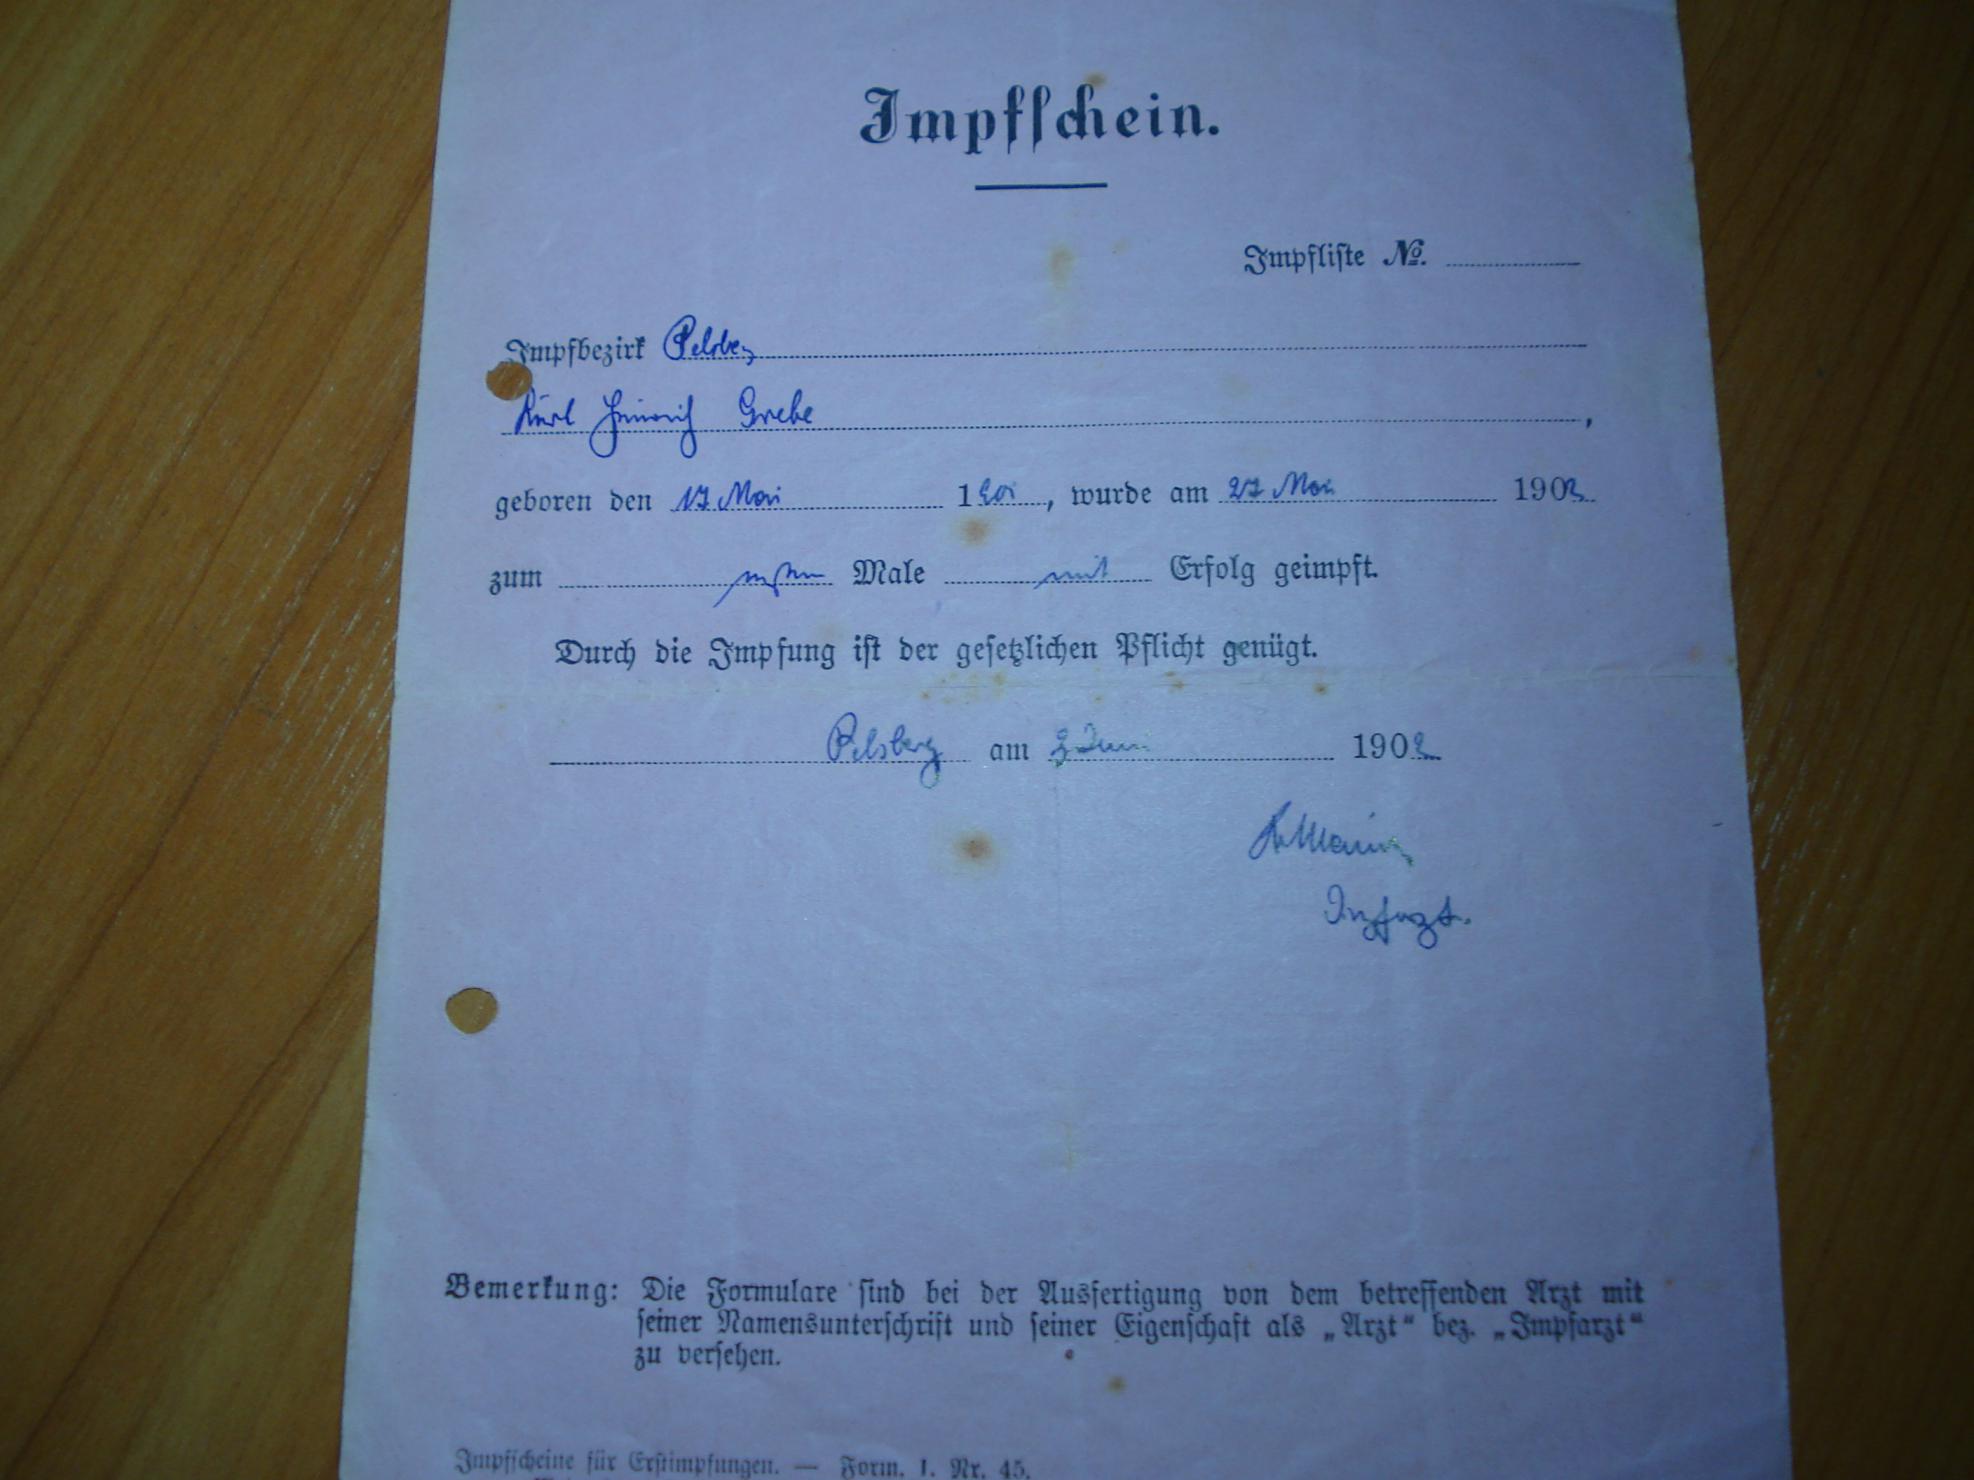 Impfschein.
Impfliste No.
Impfbezirk
Karl Heinrich Grebe,
geboren den 17 Mai 1901, wurde am 27 Mai 1902
zum ersten Male mit Erfolg geimpft.
Durch die Impfung ist der gesetzlichen Pflicht genügt.
am 3 Juni 1902
Impfarzt.
Bemerkung: Die Formulare sind bei der Ausfertigung von dem betreffenden Arzt mit
seiner Namensunterschrift und seiner Eigenschaft als „Arzt“ bez. „Impfarzt“
zu versehen.
Impfscheine für Erstimpfungen. — Form. I. Nr. 45.